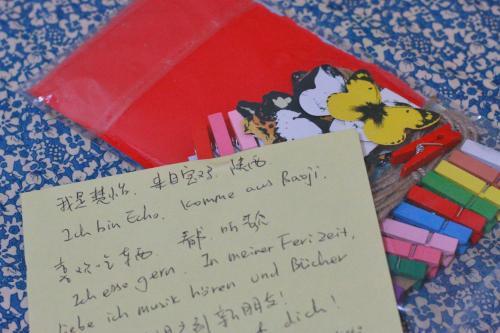 我是慧怡. 来自宝鸡, 陕西
Ich bin Echo. Komme aus Baoji.
喜欢吃东西 听歌
Ich esse gern. In meiner Ferizeit,
liebe ich musik hören und Bücher
到新朋友!
dich!